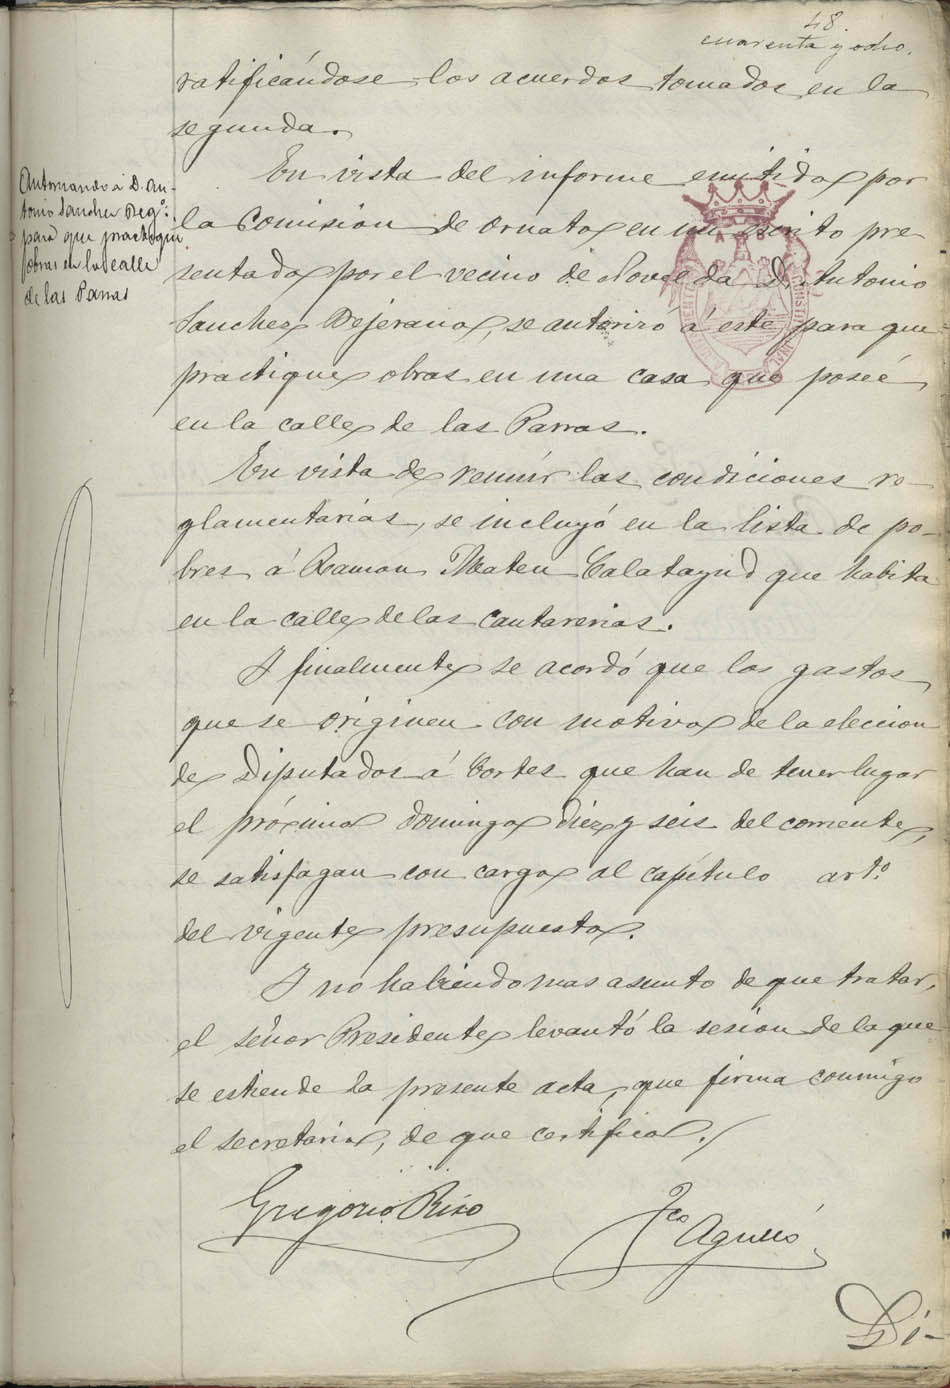 48.
cuarenta y ocho.
ratificándose los acuerdos tomados en la
segunda.
En vista del informe emitido por
la Comision de Ornato en un escrito pre
sentado por el vecino de Novelda D. Antonio
Sanchez Bejerano, se autorizó á este para que
practique obras en una casa que poseé
en la calle de las Parras.
En vista de reunir las condiciones re-
glamentarias, se incluyó en la lista de po-
bres á Ramon Mateu Calatayud que habita
en la calle de las cantarerias.
Y finalmente se acordó que los gastos
que se originen con motivo de la eleccion
de Diputados á Cortes que han de tener lugar
el próximo domingo diez y seis del corriente,
se satisfagan con cargo al capítulo art.º
del vigente presupuesto.
Y no habiendo mas asunto de que tratar,
el señor Presidente levantó la sesion de la que
se estiende la presente acta, que firma conmigo
el secretario, de que certifico./
Gregorio Rizo
Fco Agulló
Di-
Autorizando á D. An-
tonio Sanchez Beg.º
para que practique
obras en la calle
de las Parras